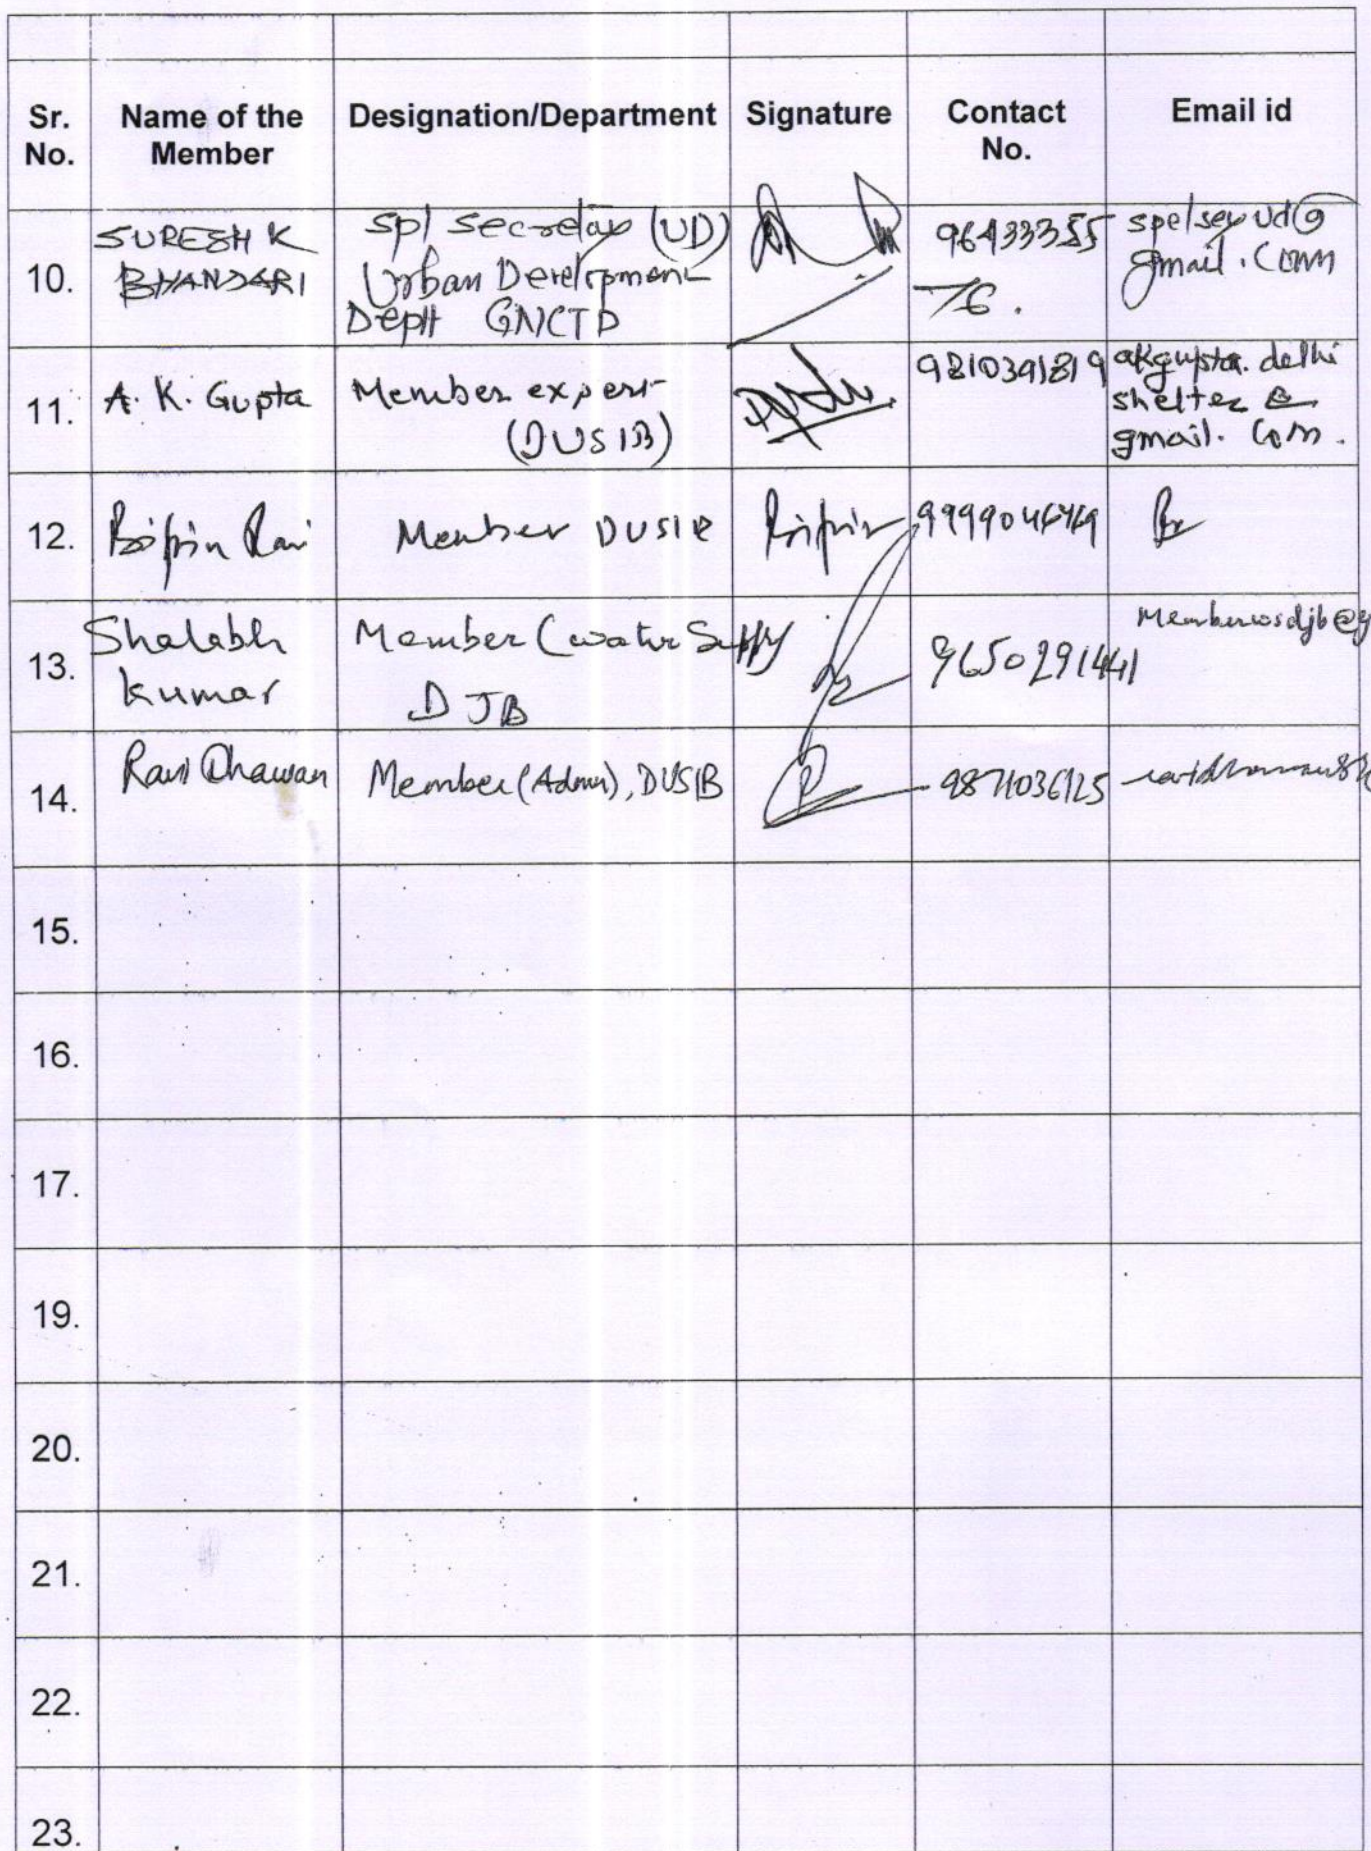 Sr. No. Name of the Member Designation/Department Signature Contact No. Email id
10. SURESH K BHANDARI
Spl Secretary (UD)
Urban Development
Deptt GNCTD
96433355
76.
spelseyud@
gmail.com
11. A. K. Gupta
Member expert
(DUSIB)
9810391819
akgupta.delhi
shelter@
gmail.com.
12. Bipin Rai Member DUSIB Bipin
13. Shalabh
Kumar
Member (Water Supply
DJB
9650291441
Memberwsdjb@g
14. Ravi Dhawan Member (Admn), DUSIB 9871036125
15.
16.
17.
19.
20.
21.
22.
23.